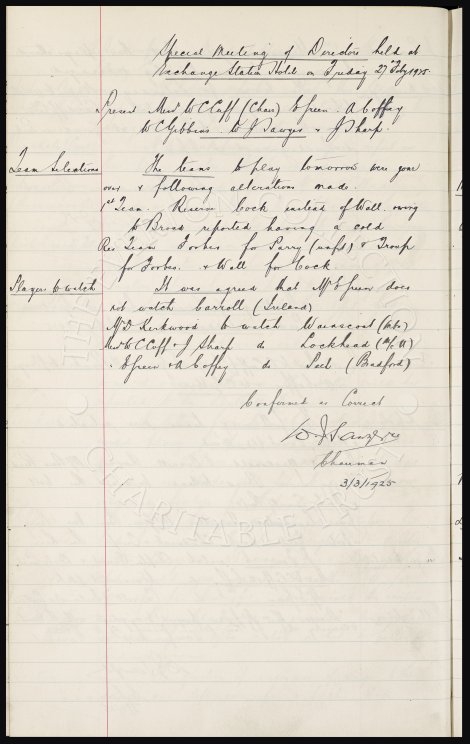 Special Meeting of Directors held at
Exchange Station Hotel on Friday 27 Feby 1925.
Present Messrs W C Cuff (Chair) E Green. A Coffey
W C Gibbins. W J Sawyer & J Sharp.
Team Selections The teams to play tomorrow were gone
over & following alterations made.
1st Team. Reserve Cock instead of Wall. owing
to Broad reported having a cold
Res Team Forbes for Parry (unfit) & Troup
for Forbes. & Wall for Cock
Players to watch It was agreed that Mr E Green does
not watch Carroll (Ireland)
Mr D Kirkwood to watch Wainscoat
Messrs W C Cuff & J Sharp do Lockhead
" E Green & A Coffey do Peel (Bradford)
Confirmed as Correct
W J Sawyer
Chairman
3/3/1925
CHARITABLE TRUST